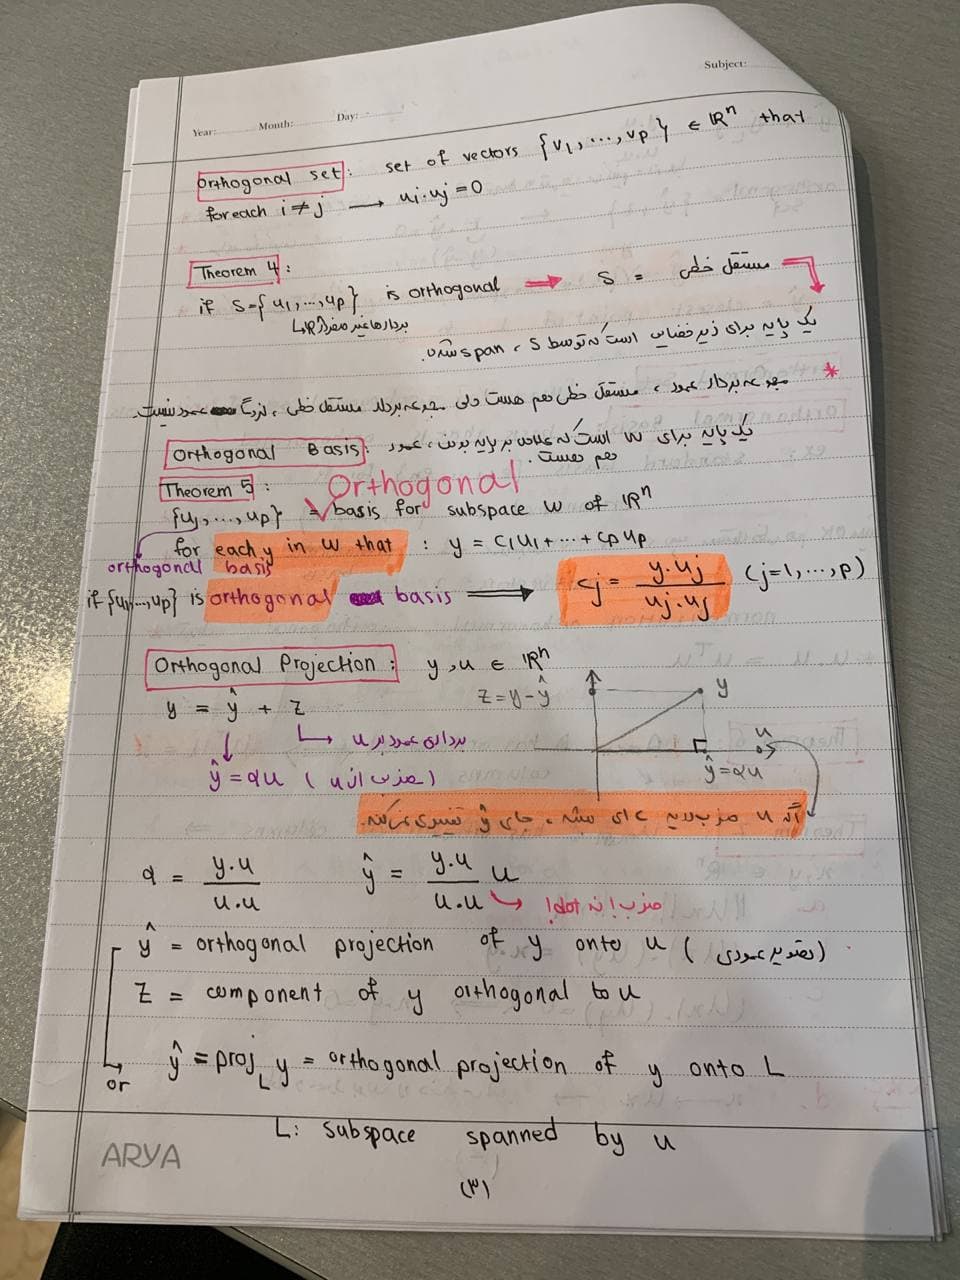 Subject:
Year: Month: Day:
Orthogonal set: set of vectors {v1, ..., vp} ∈ ℝⁿ that
for each i ≠ j → ui.uj = 0
Theorem 4:
if S={u1,...,up} is orthogonal → S = مستقل خطی
بردارها غیر صفر
یک پایه برای زیرفضایی است که توسط S، span شده.
* مجموعه بردار عمود، مستقل خطی هم هست ولی مجموعه بردار مستقل خطی، لزوما عمود نیست.
Orthogonal Basis: یک پایه برای W است که علاوه بر پایه بودن، عمود
هم هست.
Theorem 5: Orthogonal
{u1, ..., up} = basis for subspace W of ℝⁿ
for each y in W that : y = c1u1+...+cpup
orthogonal basis
if {u1,...,up} is orthogonal basis ⟶ cj = y.uj / uj.uj (j=1,...,p)
Orthogonal Projection: y,u ∈ ℝⁿ
y = ŷ + z z=y-ŷ y
برداری عمود بر u u
ŷ = αu (ضرب از u) ŷ=αu
اگه u ضرب در یه c ای بشه، جای ŷ تغییری نمی‌کنه.
α = y.u / u.u ŷ = y.u / u.u u
ضرب! نه dot!
ŷ = orthogonal projection of y onto u (تصویر عمودی)
z = component of y orthogonal to u
or ŷ = proj_L y = orthogonal projection of y onto L
L: subspace spanned by u
ARYA
(۳)